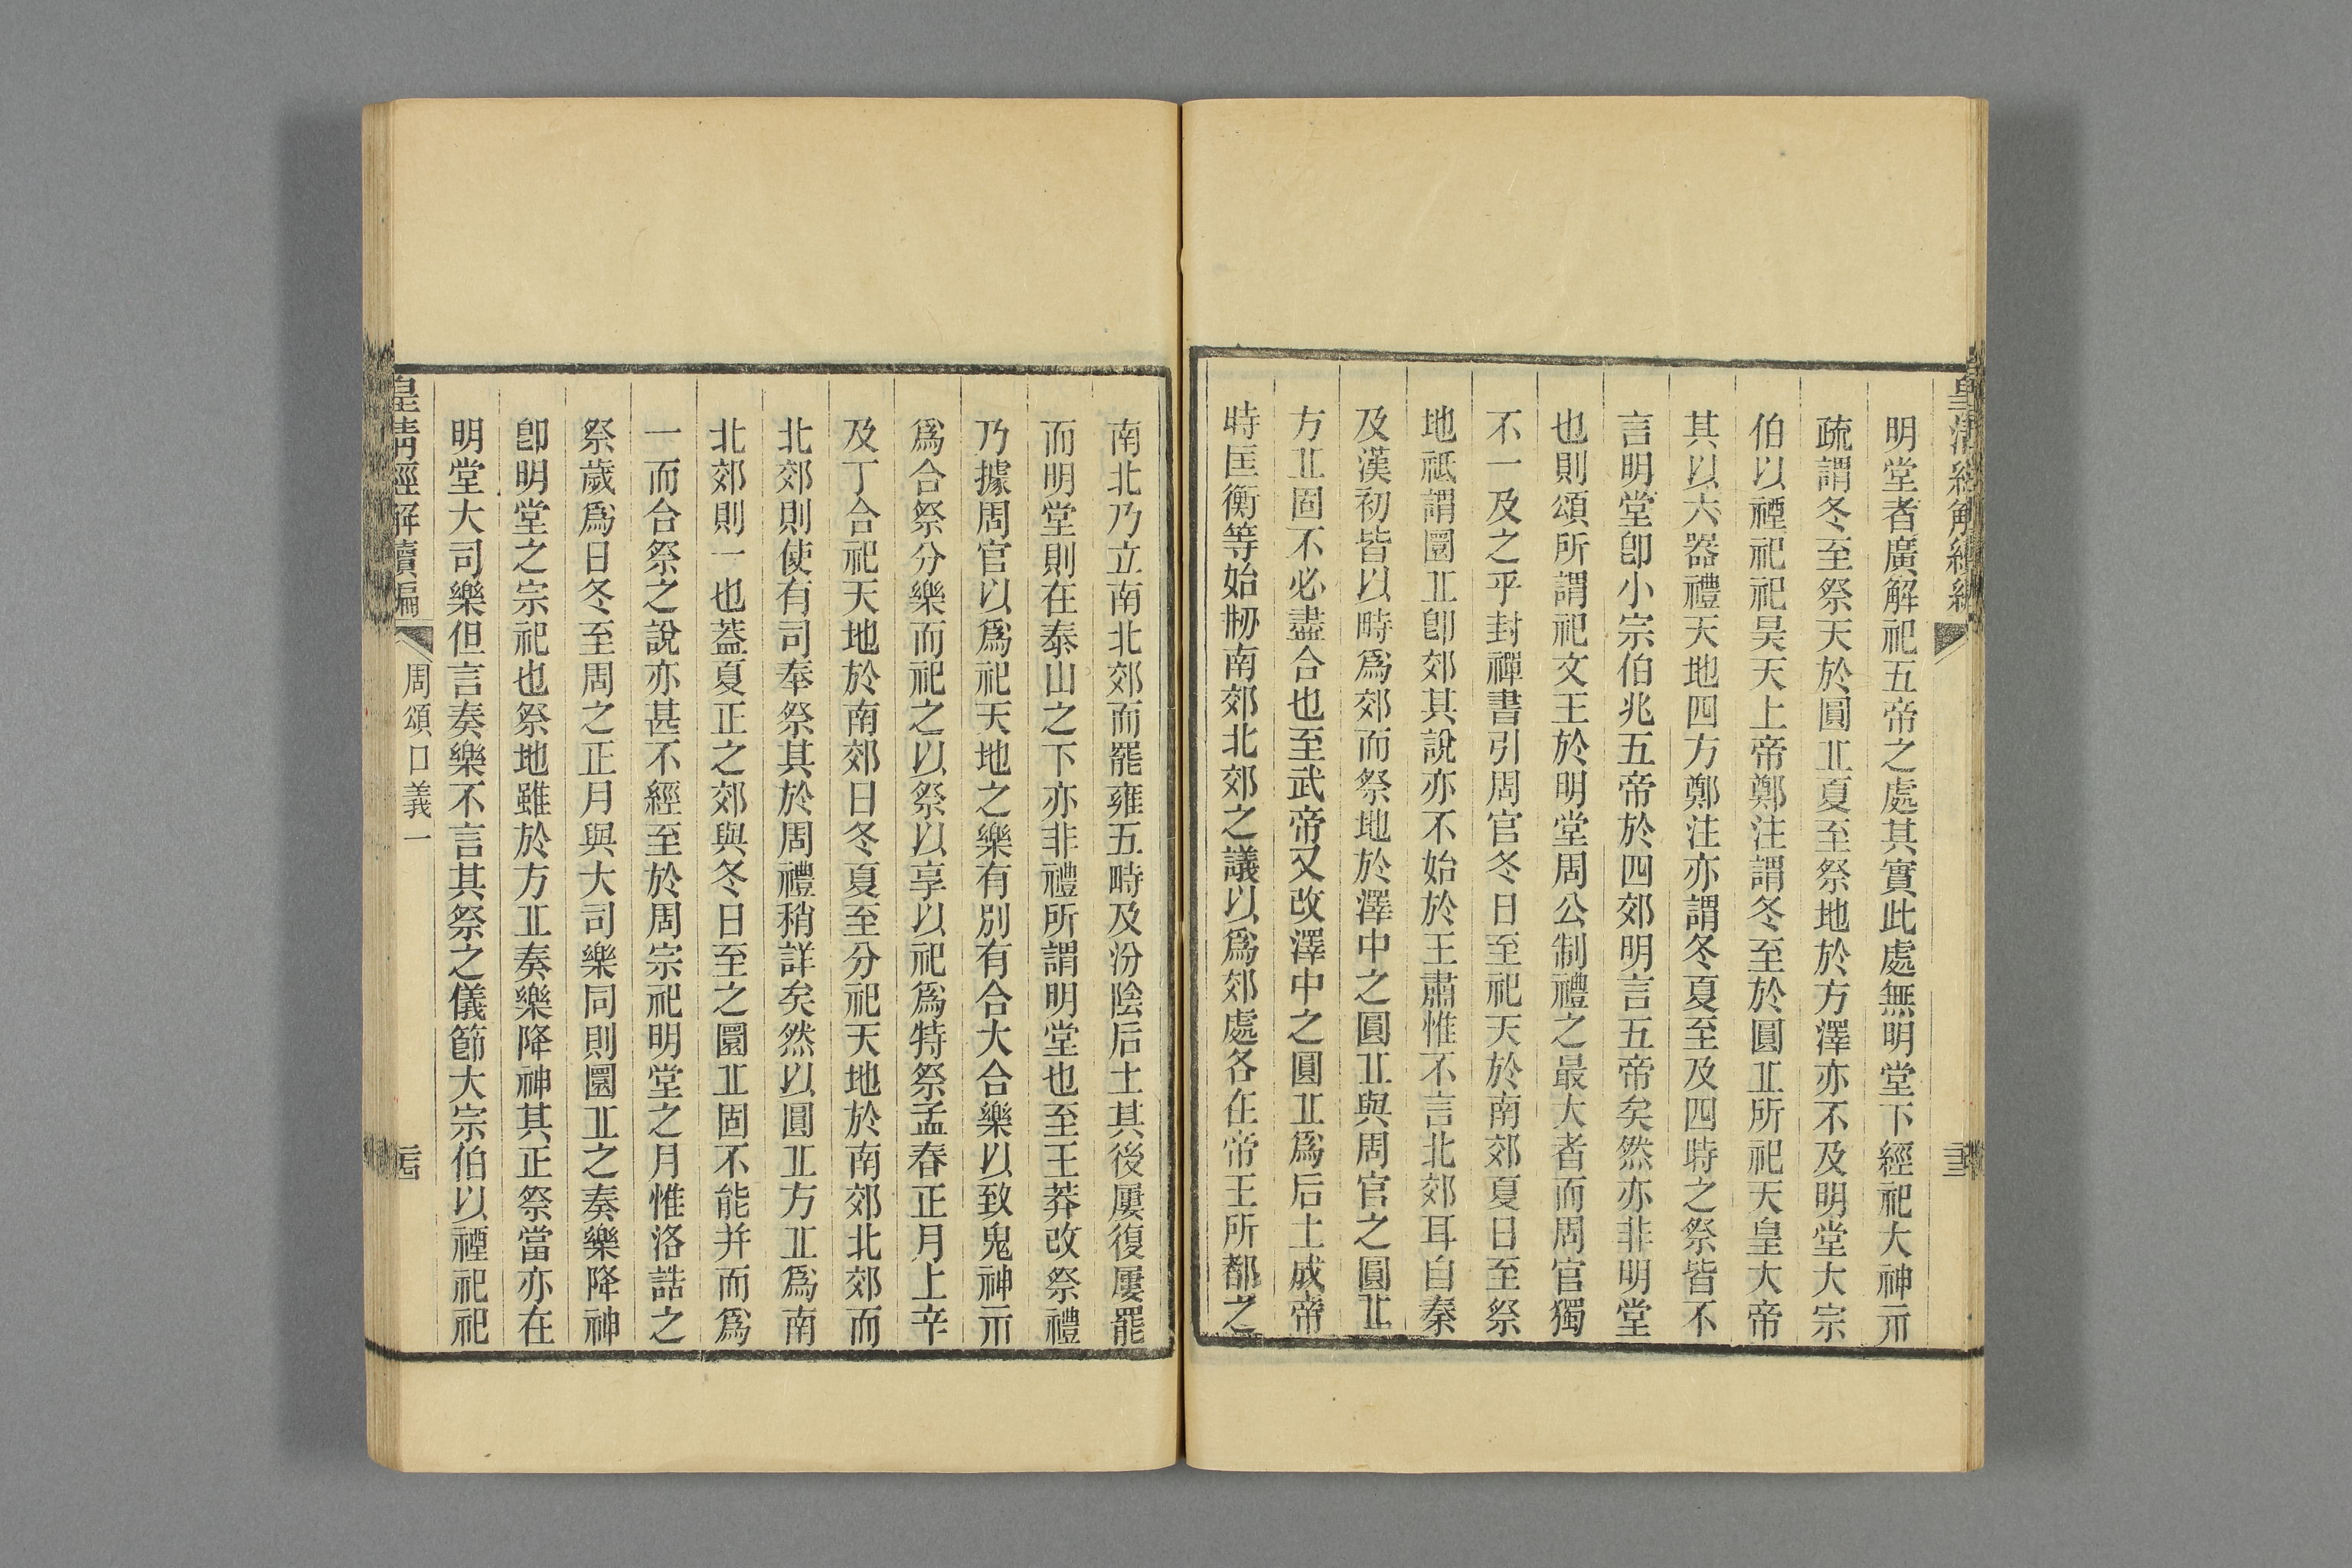 明堂者廣解祀五帝之處其實此處無明堂下經祀大神示
疏謂冬至祭天於圓丠夏至祭地於方澤亦不及明堂大宗
伯以禋祀祀昊天上帝鄭注謂冬至於圓丠所祀天皇大帝
其以六器禮天地四方鄭注亦謂冬夏至及四時之祭皆不
言明堂卽小宗伯兆五帝於四郊明言五帝矣然亦非明堂
也則頌所謂祀文王於明堂周公制禮之最大者而周官獨
不一及之乎封禪書引周官冬日至祀天於南郊夏日至祭
地祗謂圜丠卽郊其說亦不始於王肅惟不言北郊耳自秦
及漢初皆以畤爲郊而祭地於澤中之圓丠與周官之圓丠
方丠固不必盡合也至武帝又改澤中之圓丠爲后土成帝
時匡衡等始刱南郊北郊之議以爲郊處各在帝王所都之
皇清經解續編
南北乃立南北郊而罷雍五畤及汾陰后土其後屢復屢罷
而明堂則在泰山之下亦非禮所謂明堂也至王莽改祭禮
乃據周官以爲祀天地之樂有別有合大合樂以致鬼神示
爲合祭分樂而祀之以祭以享以祀爲特祭孟春正月上辛
及丁合祀天地於南郊日冬夏至分祀天地於南郊北郊而
北郊則使有司奉祭其於周禮稍詳矣然以圓丠方丠爲南
北郊則一也蓋夏正之郊與冬日至之圜丠固不能并而爲
一而合祭之說亦甚不經至於周宗祀明堂之月惟洛誥之
祭歲爲日冬至周之正月與大司樂同則圜丠之奏樂降神
卽明堂之宗祀也祭地雖於方丠奏樂降神其正祭當亦在
明堂大司樂但言奏樂不言其祭之儀節大宗伯以禋祀祀
皇清經解續編 周頌口義一 三四